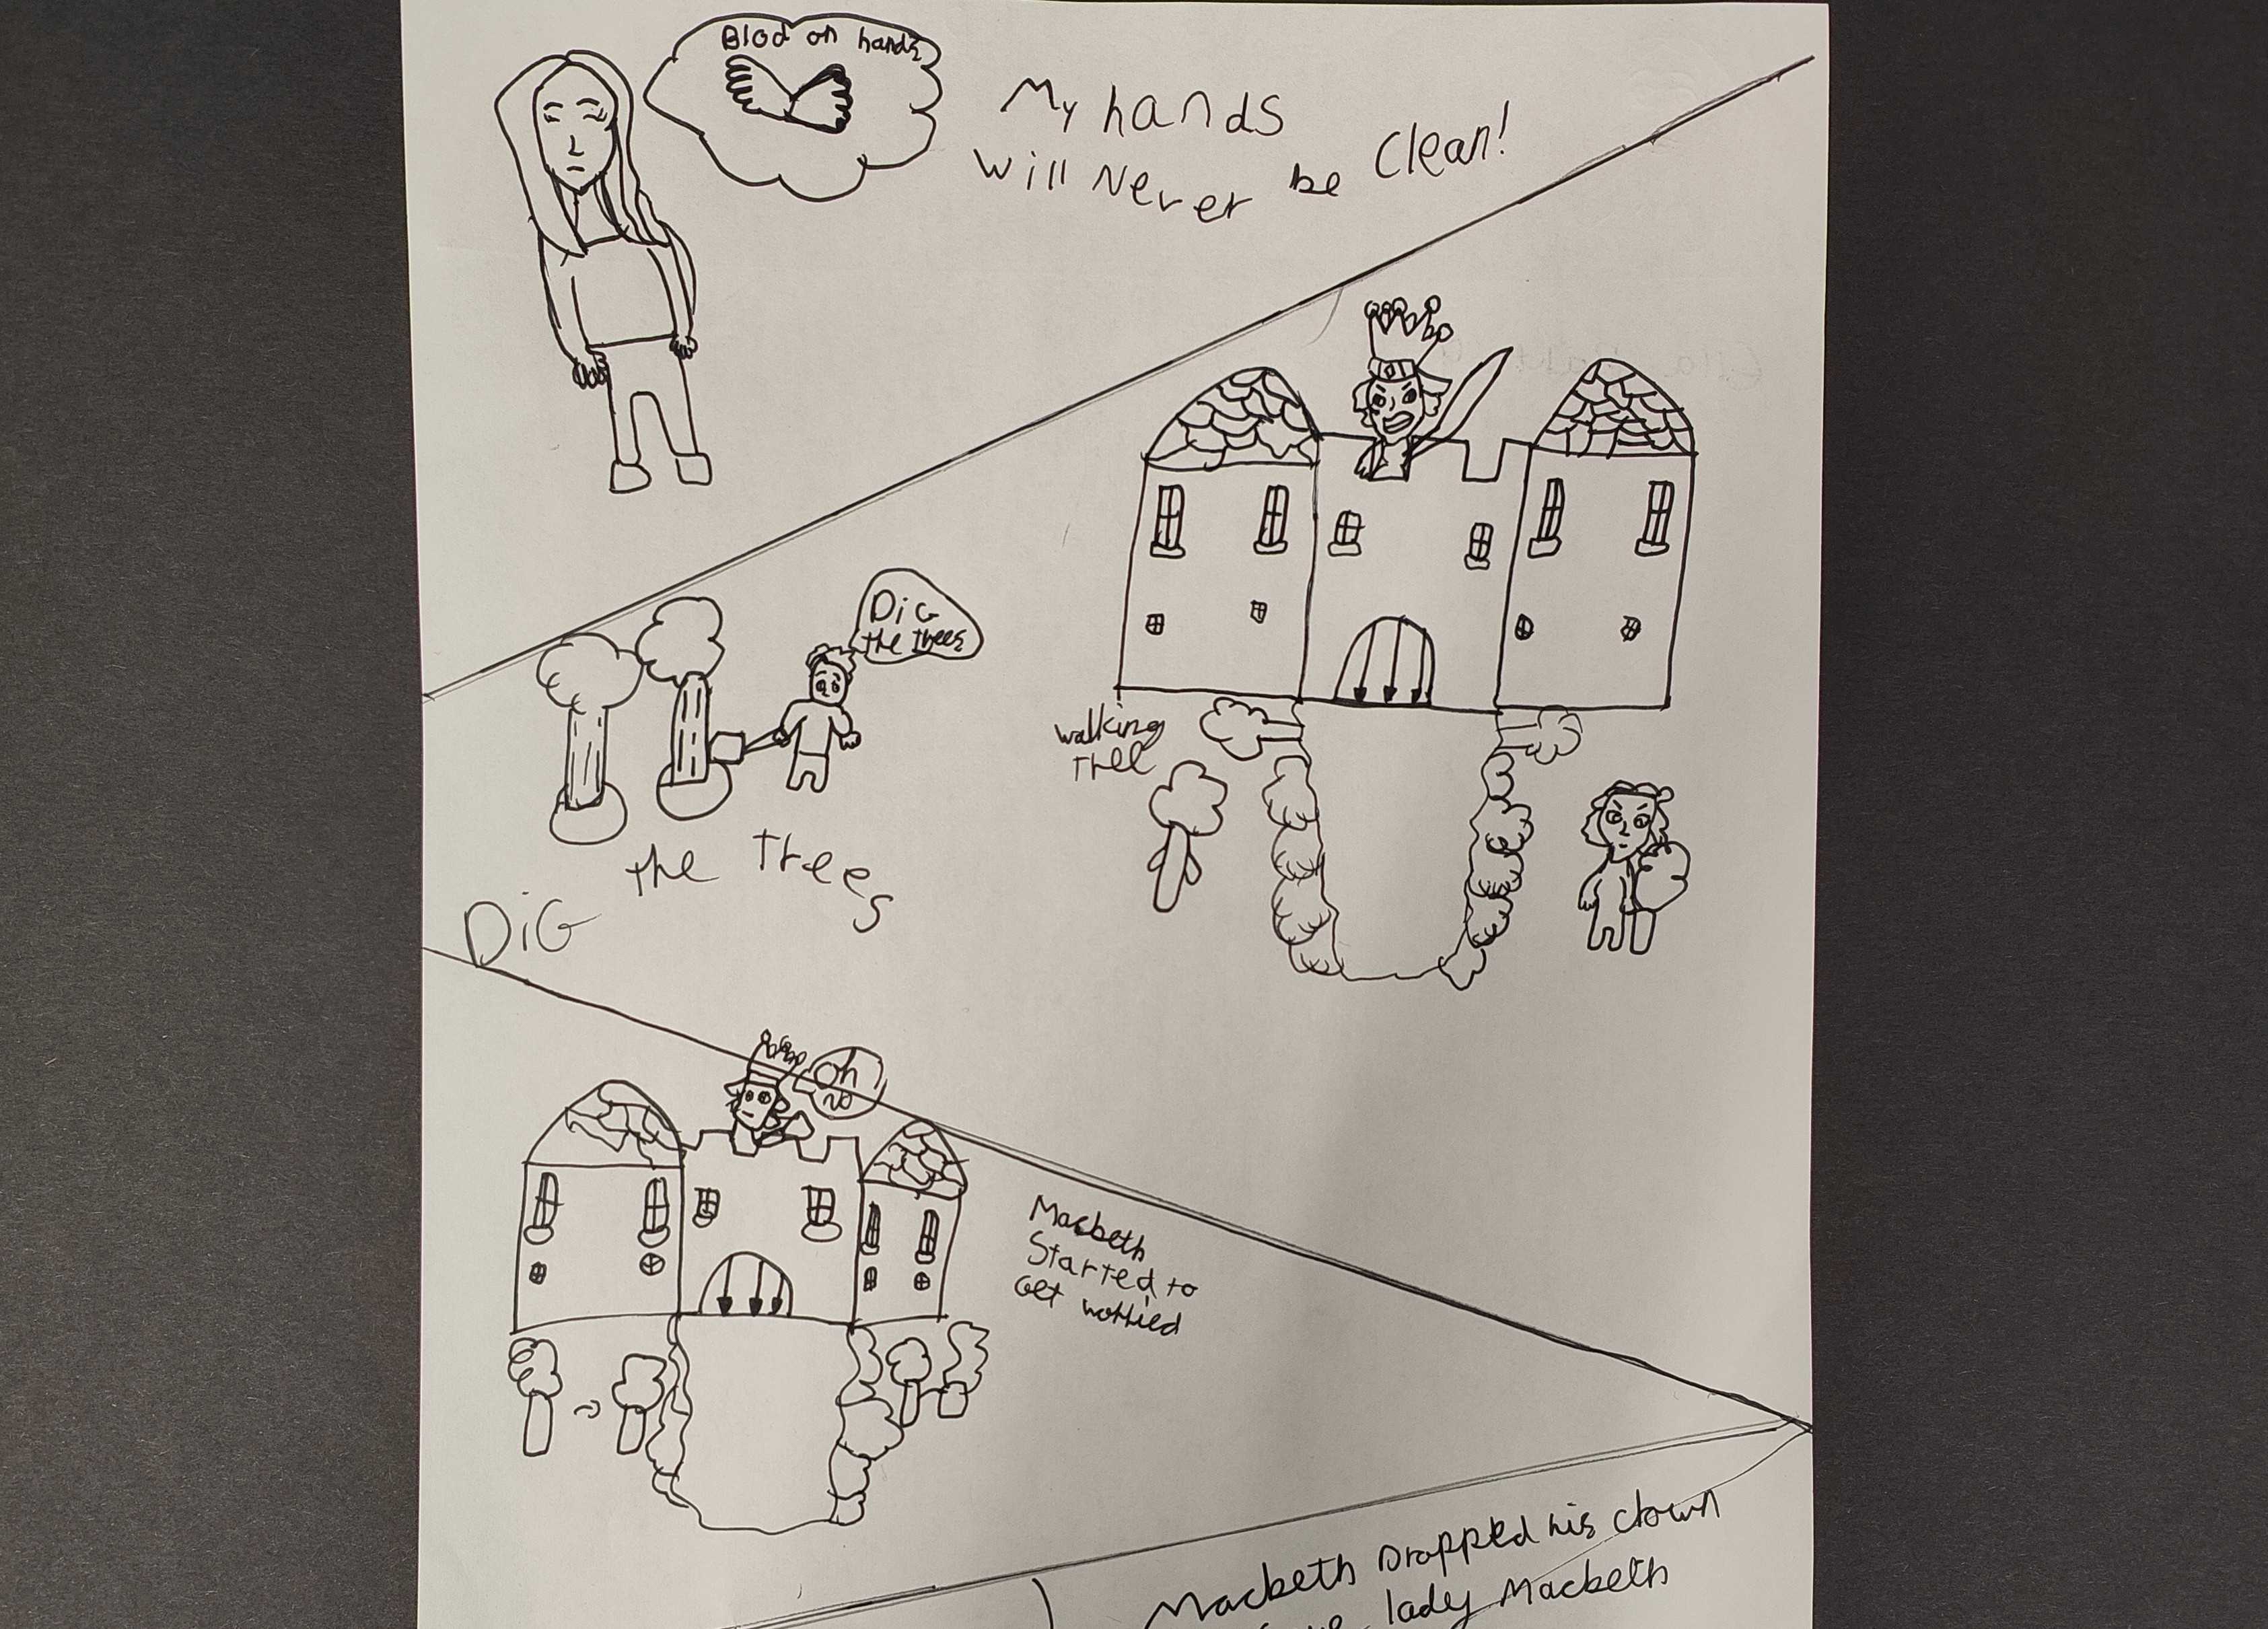 Blod on hands
My hands
will Never be Clean!
DiG
the trees
walking
tree
DiG the Trees
oh
no
Macbeth
Started to
Get worried
Macbeth Dropped his crown
lady Macbeth